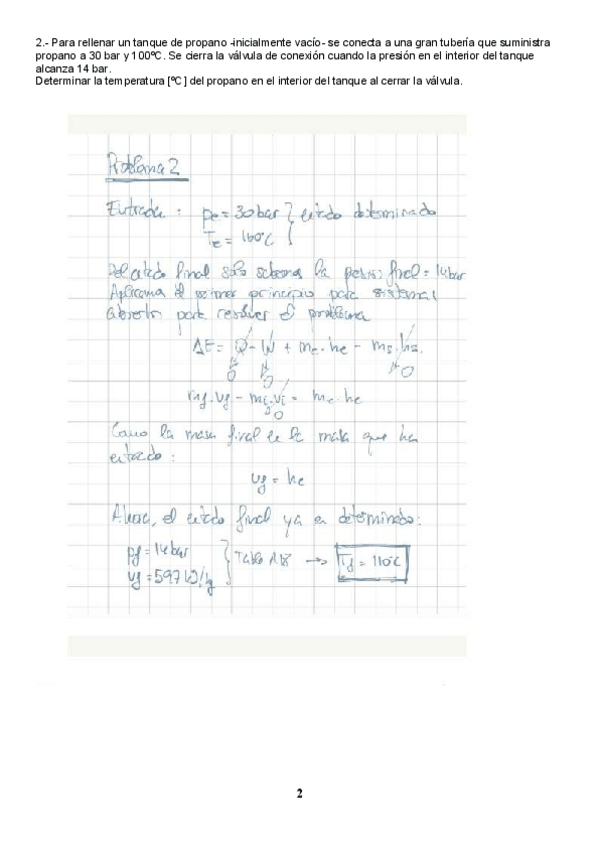 2.- Para rellenar un tanque de propano -inicialmente vacío- se conecta a una gran tubería que suministra
propano a 30 bar y 100ºC. Se cierra la válvula de conexión cuando la presión en el interior del tanque
alcanza 14 bar.
Determinar la temperatura [ºC] del propano en el interior del tanque al cerrar la válvula.
Problema 2
Entrada : pe = 30 bar } estado determinado
Te = 100ºC
Del estado final solo sabemos la presión final = 14 bar
Aplicamos el primer principio para sistemas
abiertos para resolver el problema
ΔE = Q - W + me.he - ms.hs.
0 0 0
mf.uf - mi.ui = me.he
0
Como la masa final es la masa que ha
entrado :
uf = he
Ahora, el estado final ya es determinado:
pf = 14 bar
uf = 597 kJ/kg } Tabla A18 → Tf = 110ºC
2